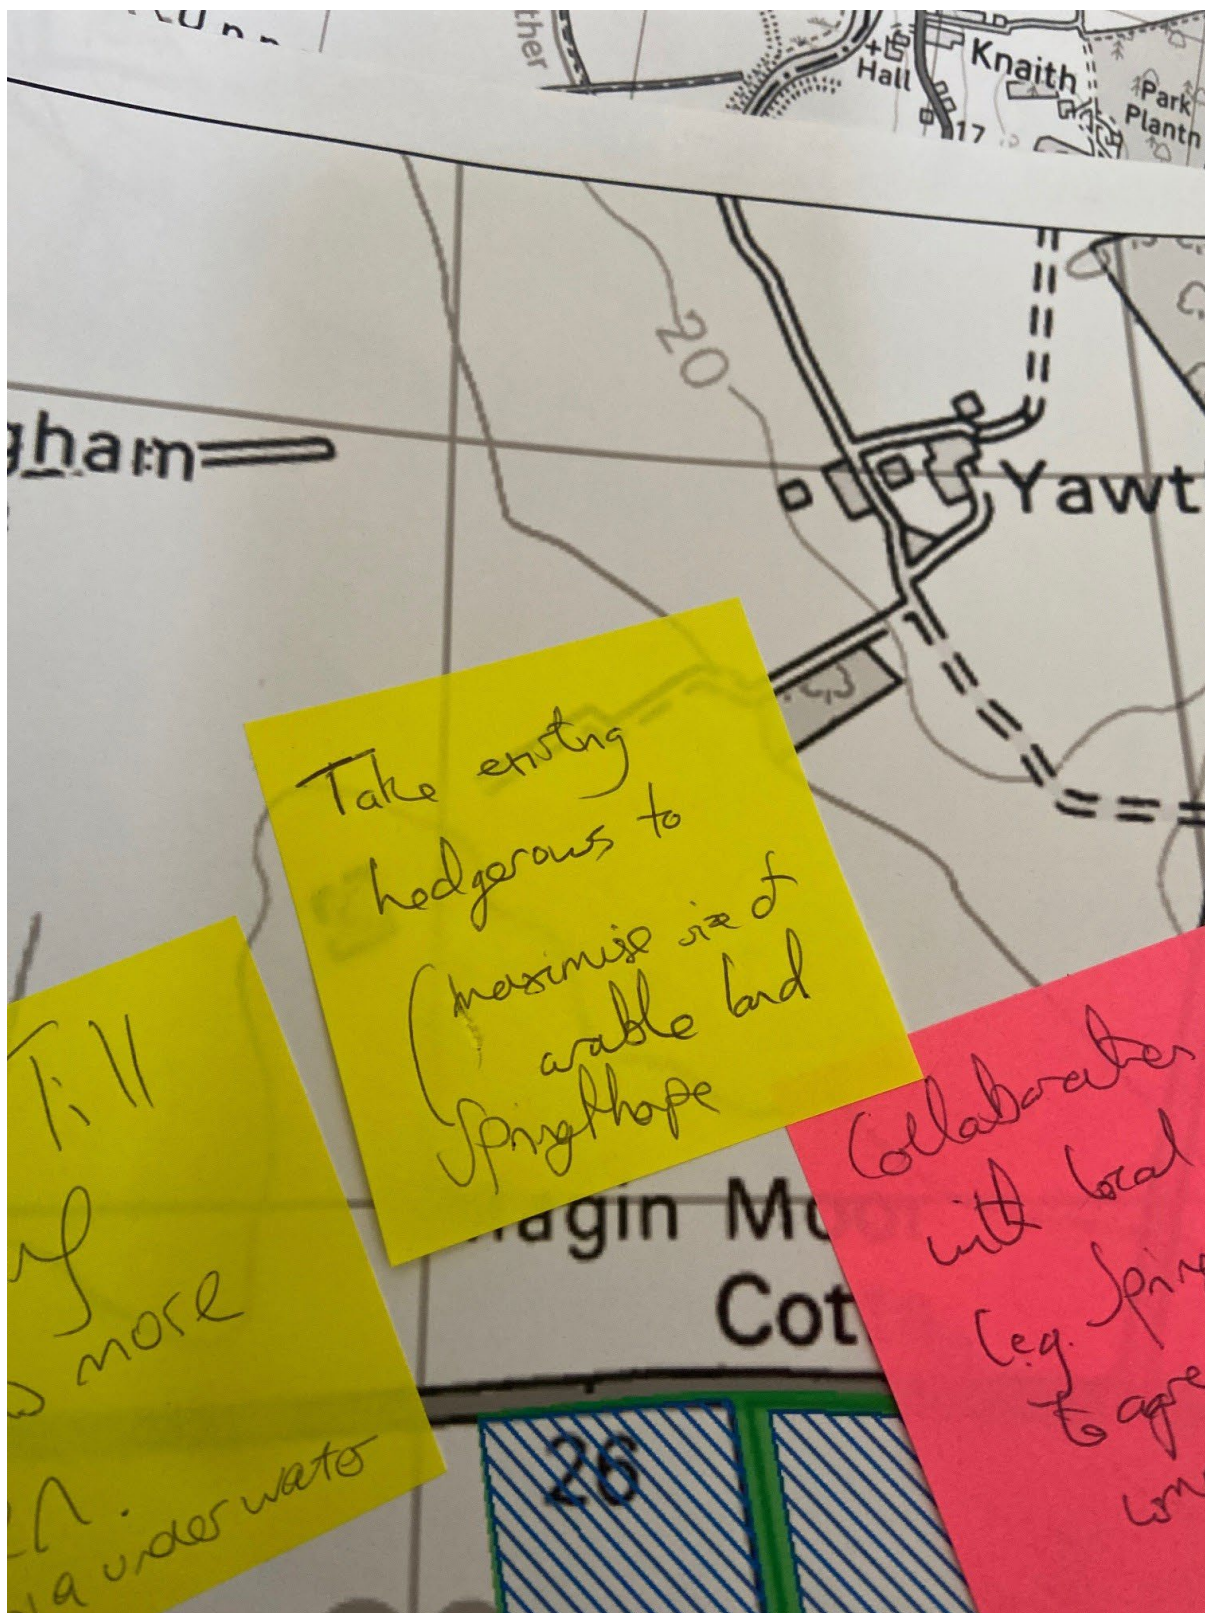 ther
Hall
Knaith
Park
Plantn
17
20
gham
Yawt
Take existing
hedgerows to
(maximise size of
arable land
Springthorpe
Till
more
underwater
agin Mo
Cot
26
Collaboration
with local
(e.g. Sprin
to agre